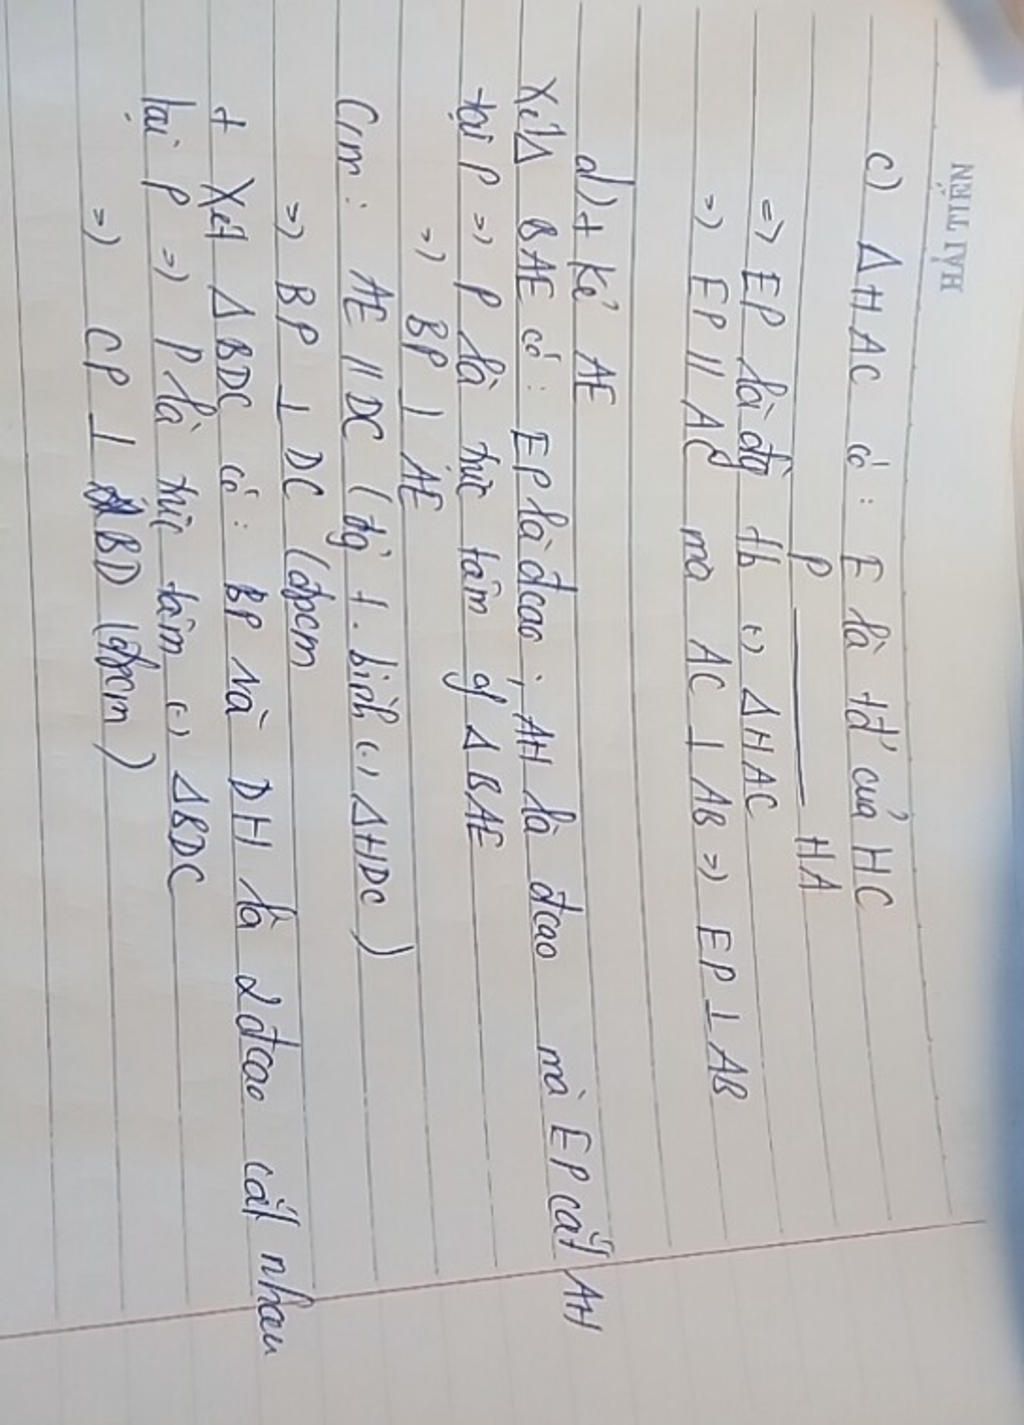 HẢI TIẾN
c) Δ HAC có : E là tđ' của HC
P ——— HA
=> EP là đg tb (.) Δ HAC
=> EP // AC mà AC ⊥ AB => EP ⊥ AB
d) + Kẻ AE
Xét Δ BAE có : EP là đcao ; AH là đcao mà EP cắt AH
tại P => P là trực tâm of Δ BAE
=> BP ⊥ AE
Cm : AE // DC (đg t. bình (.) Δ HDC)
=> BP ⊥ DC (đpcm
+ Xét Δ BDC có : BP và DH là 2 đcao cắt nhau
tại P => P là trực tâm (.) Δ BDC
=> CP ⊥ BD (đpcm)